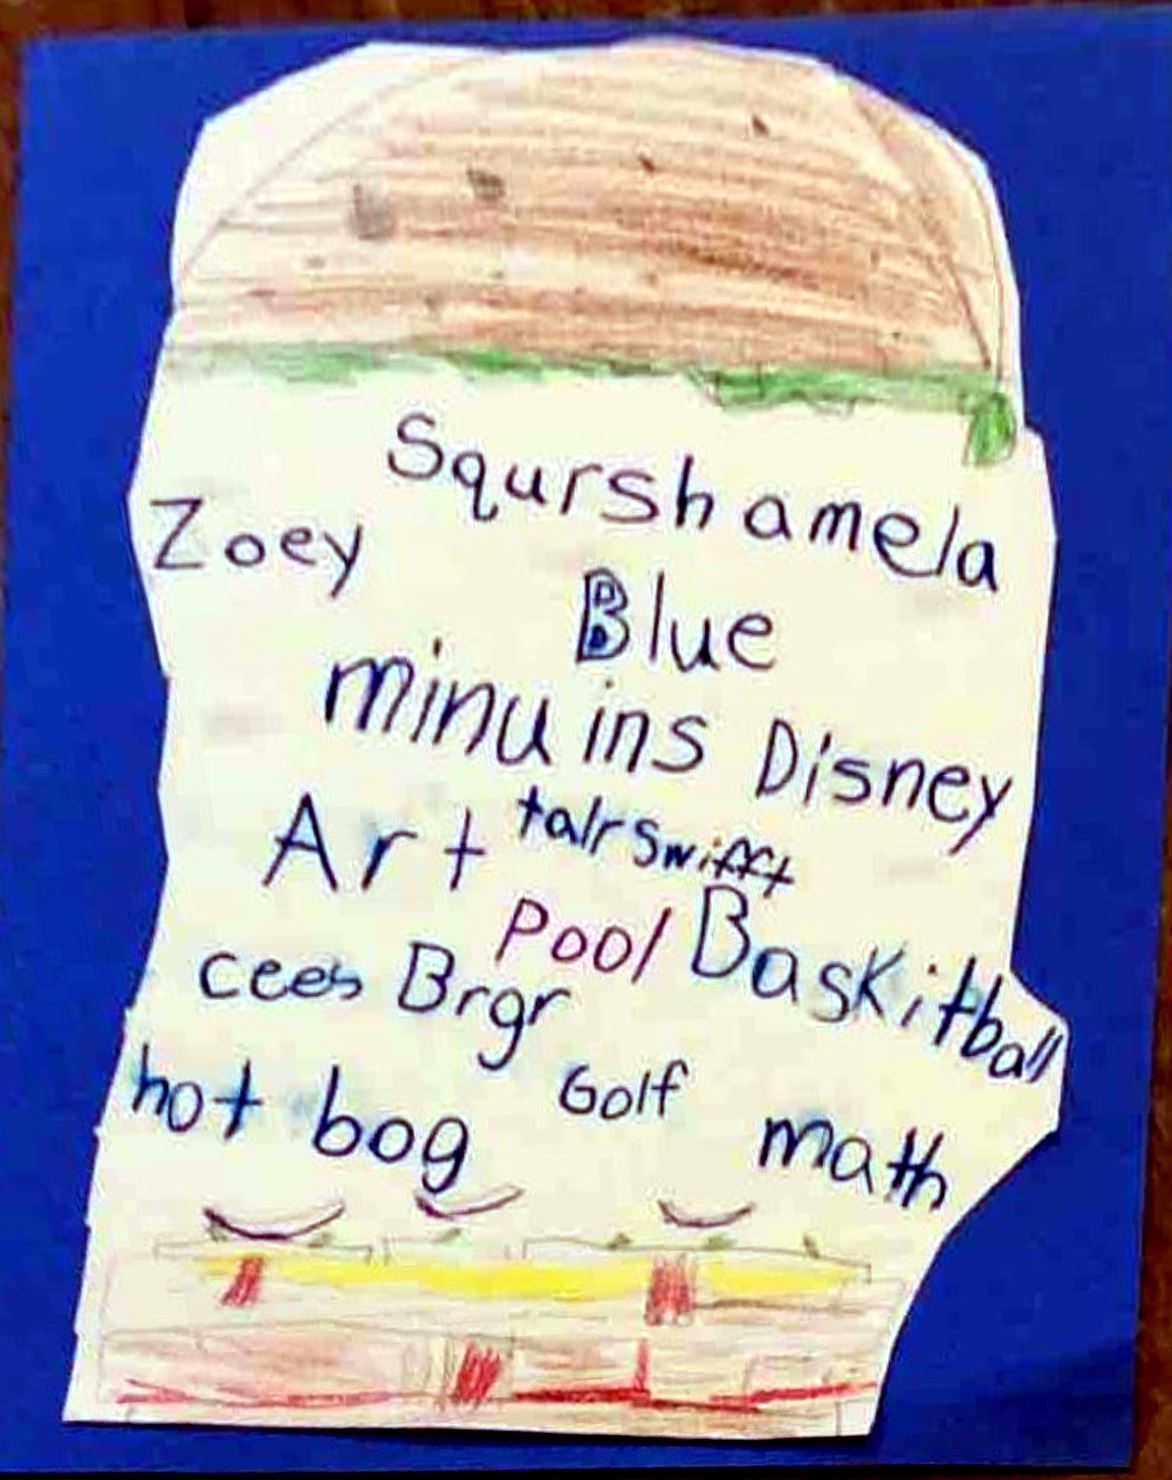 Squrshamela
Zoey
Blue
minuins Disney
Art talrswifft
Pool Baskitball
cees Brgr
hot bog Golf math